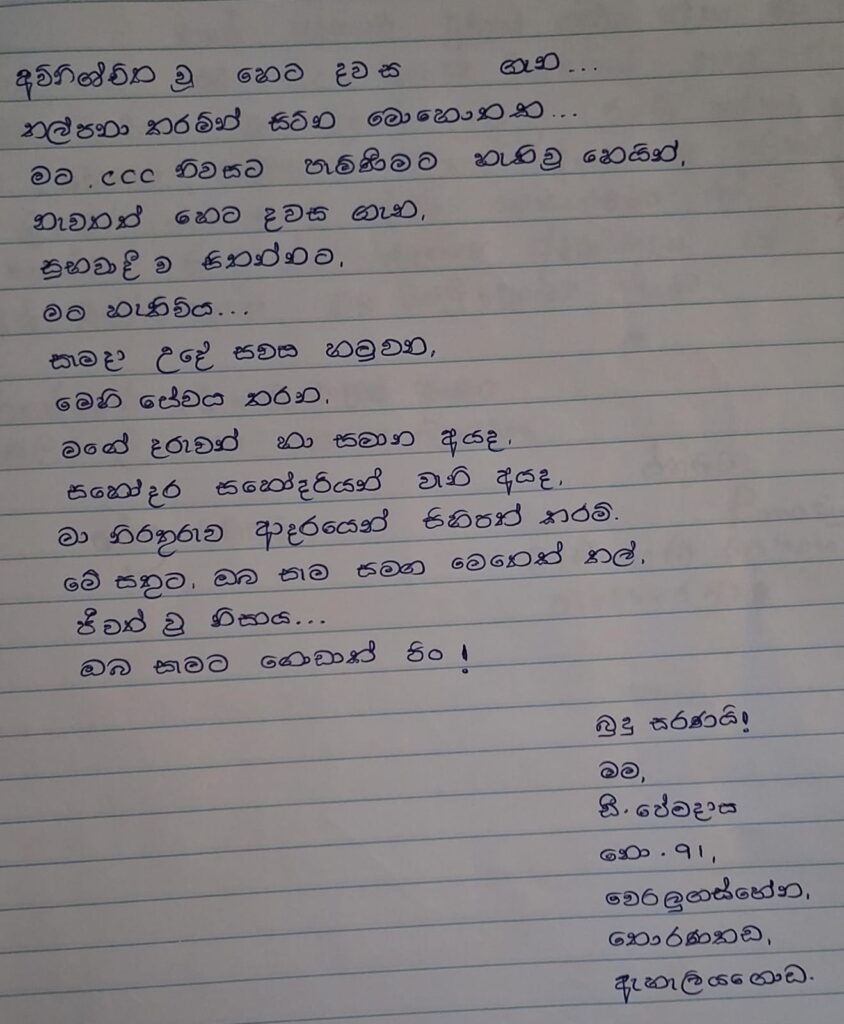 අවිනිශ්චිත වූ හෙට දවස ගැන...
කල්පනා කරමින් සිටින මොහොතක...
මට .ccc නිවසට පැමිණීමට හැකිවූ හෙයින්,
නැවතත් හෙට දවස ගැන,
සුභවාදී ව සිතන්නට,
මට හැකිවිය...
සැමදා උදේ සවස හමුවන,
මෙහි සේවය කරන,
මගේ දරුවන් හා සමාන අයද,
සහෝදර සහෝදරියන් වැනි අයද,
මා නිරතුරුව ආදරයෙන් සිහිපත් කරමි.
මේ සතුට, ඔබ සැම සමග මෙතෙක් කල්,
ජීවත් වූ නිසාය...
ඔබ සැමට ගොඩාක් පිං !
බුදු සරණයි!
මම,
සී. පේමදාස
නො. 91,
වෙරලුගස්හේන,
තොරණකඩ,
ඇහැලියගොඩ.